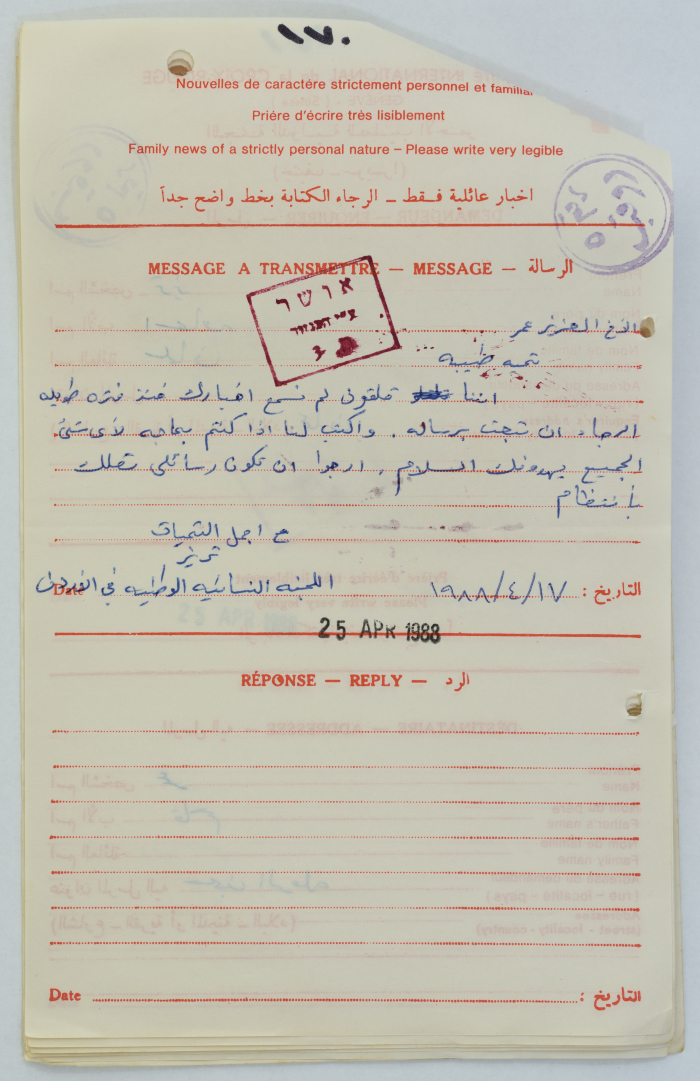 ١٧.
Nouvelles de caractére strictement personnel et familial
Priére d'écrire très lisiblement
Family news of a strictly personal nature – Please write very legible
اخبار عائلية فـقـط ــ الرجاء الكتابة بخط واضح جداً
MESSAGE A TRANSMETTRE — MESSAGE — الرسالة
אושר
الأخ العزيز عمر
تحيه طيبه
اننا قلقون لم نسمع اخبارك منذ فتره طويله
الرجاء ان تبعث برساله . واكتب لنا اذا كنتم بحاجه لأي شئ
الجميع يهدونك السلام . ارجوا ان تكون رسائلي تصلك
بأنتظام
اجمل التحيات
اللجنه النسائيه الوطنيه في
Date ١٩٨٨/٤/١٧ التاريخ :
25 APR 1988
RÉPONSE — REPLY — الرد
Date التاريخ :